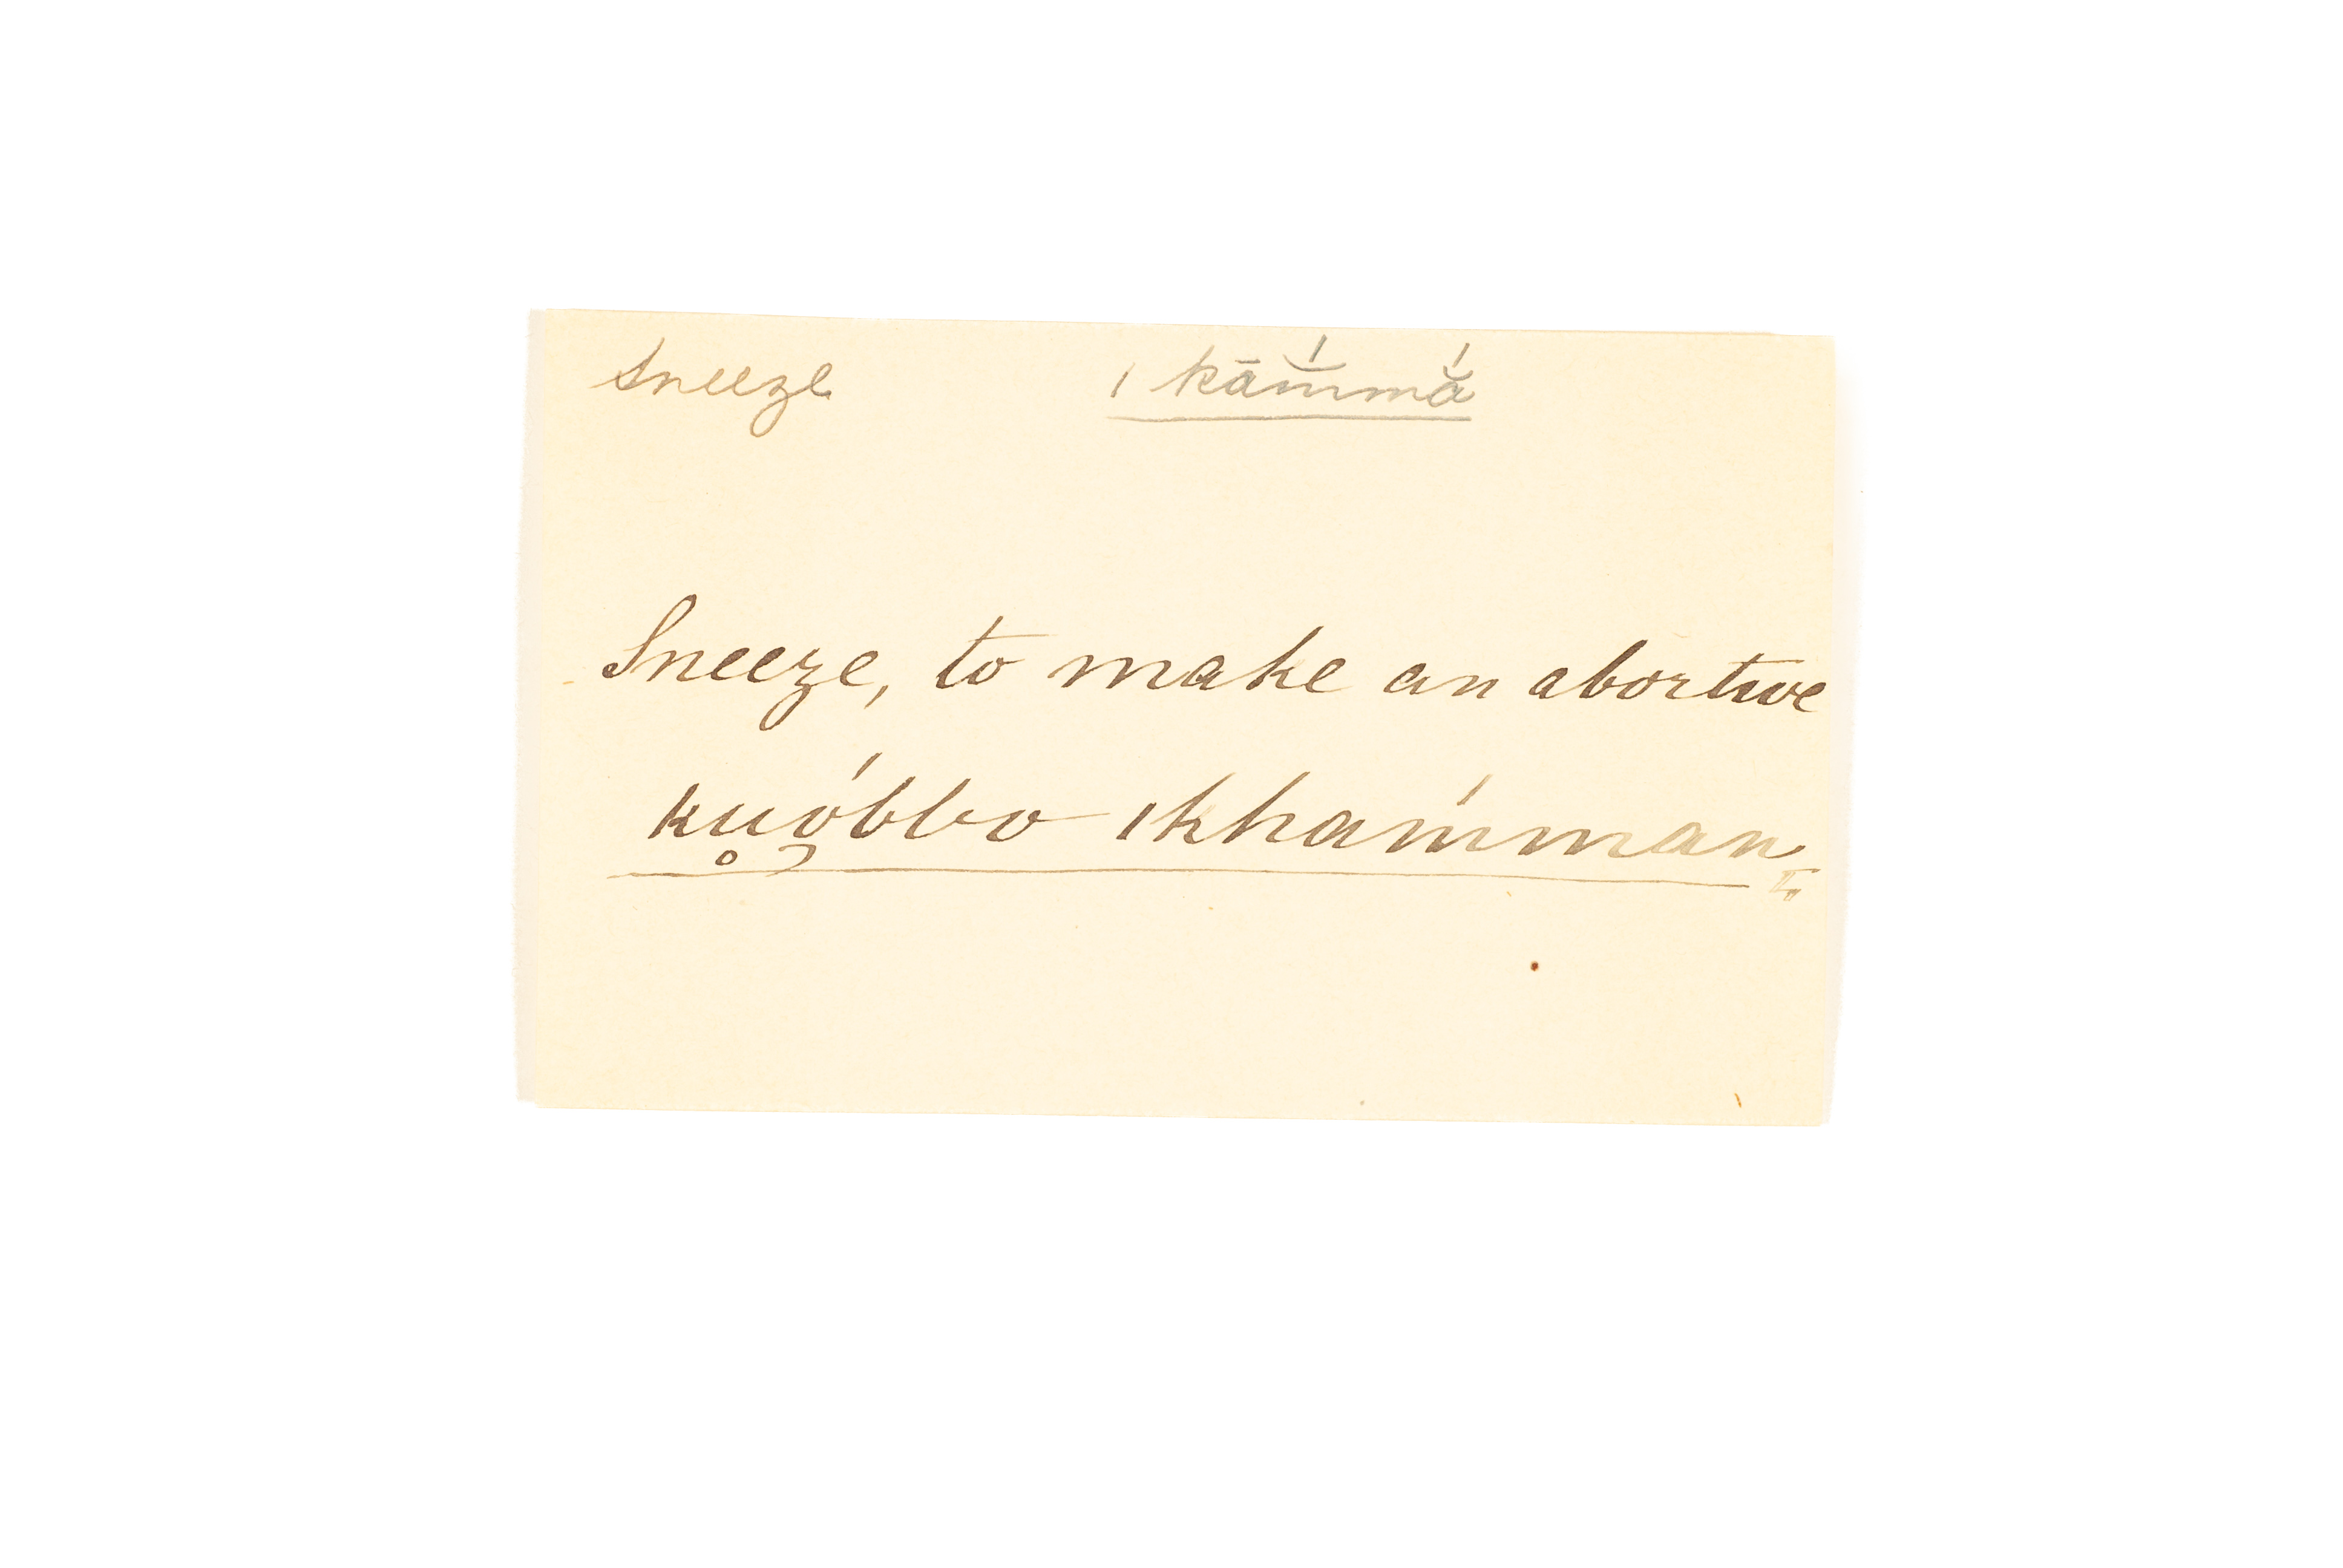 Sneeze ǀkām̆́mắ
Sneeze, to make an abortive
ku̥ó̜bbo ǀkham̍man